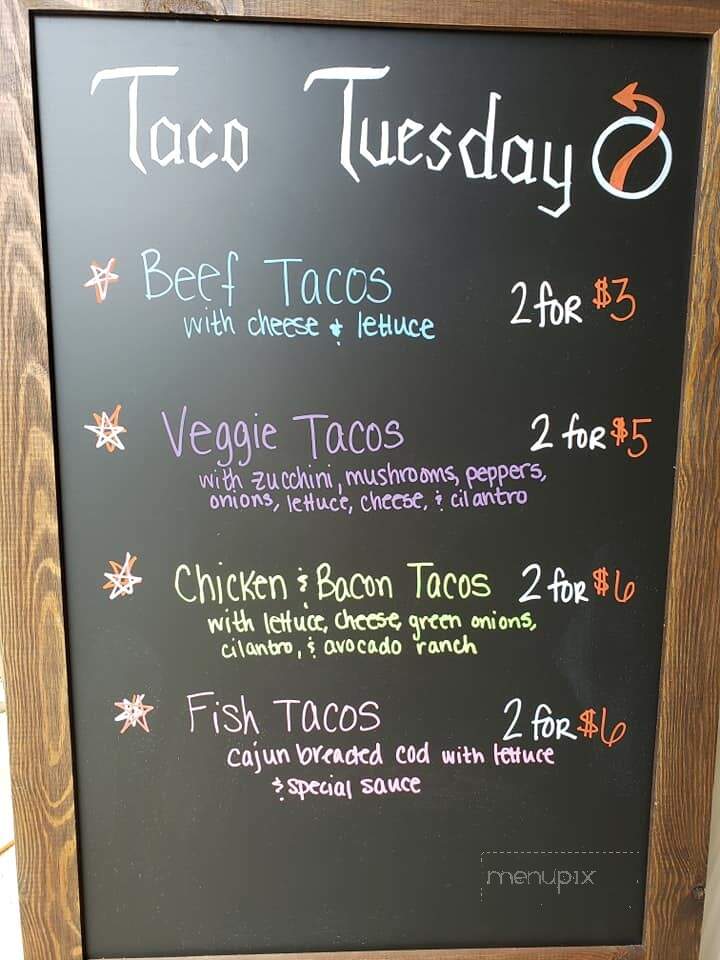 Taco Tuesday
Beef Tacos 2 for $3
with cheese & lettuce
Veggie Tacos 2 for $5
with zucchini, mushrooms, peppers,
onions, lettuce, cheese, & cilantro
Chicken & Bacon Tacos 2 for $6
with lettuce, cheese, green onions,
cilantro, & avocado ranch
Fish Tacos 2 for $6
cajun breaded cod with lettuce
& special sauce
menupix